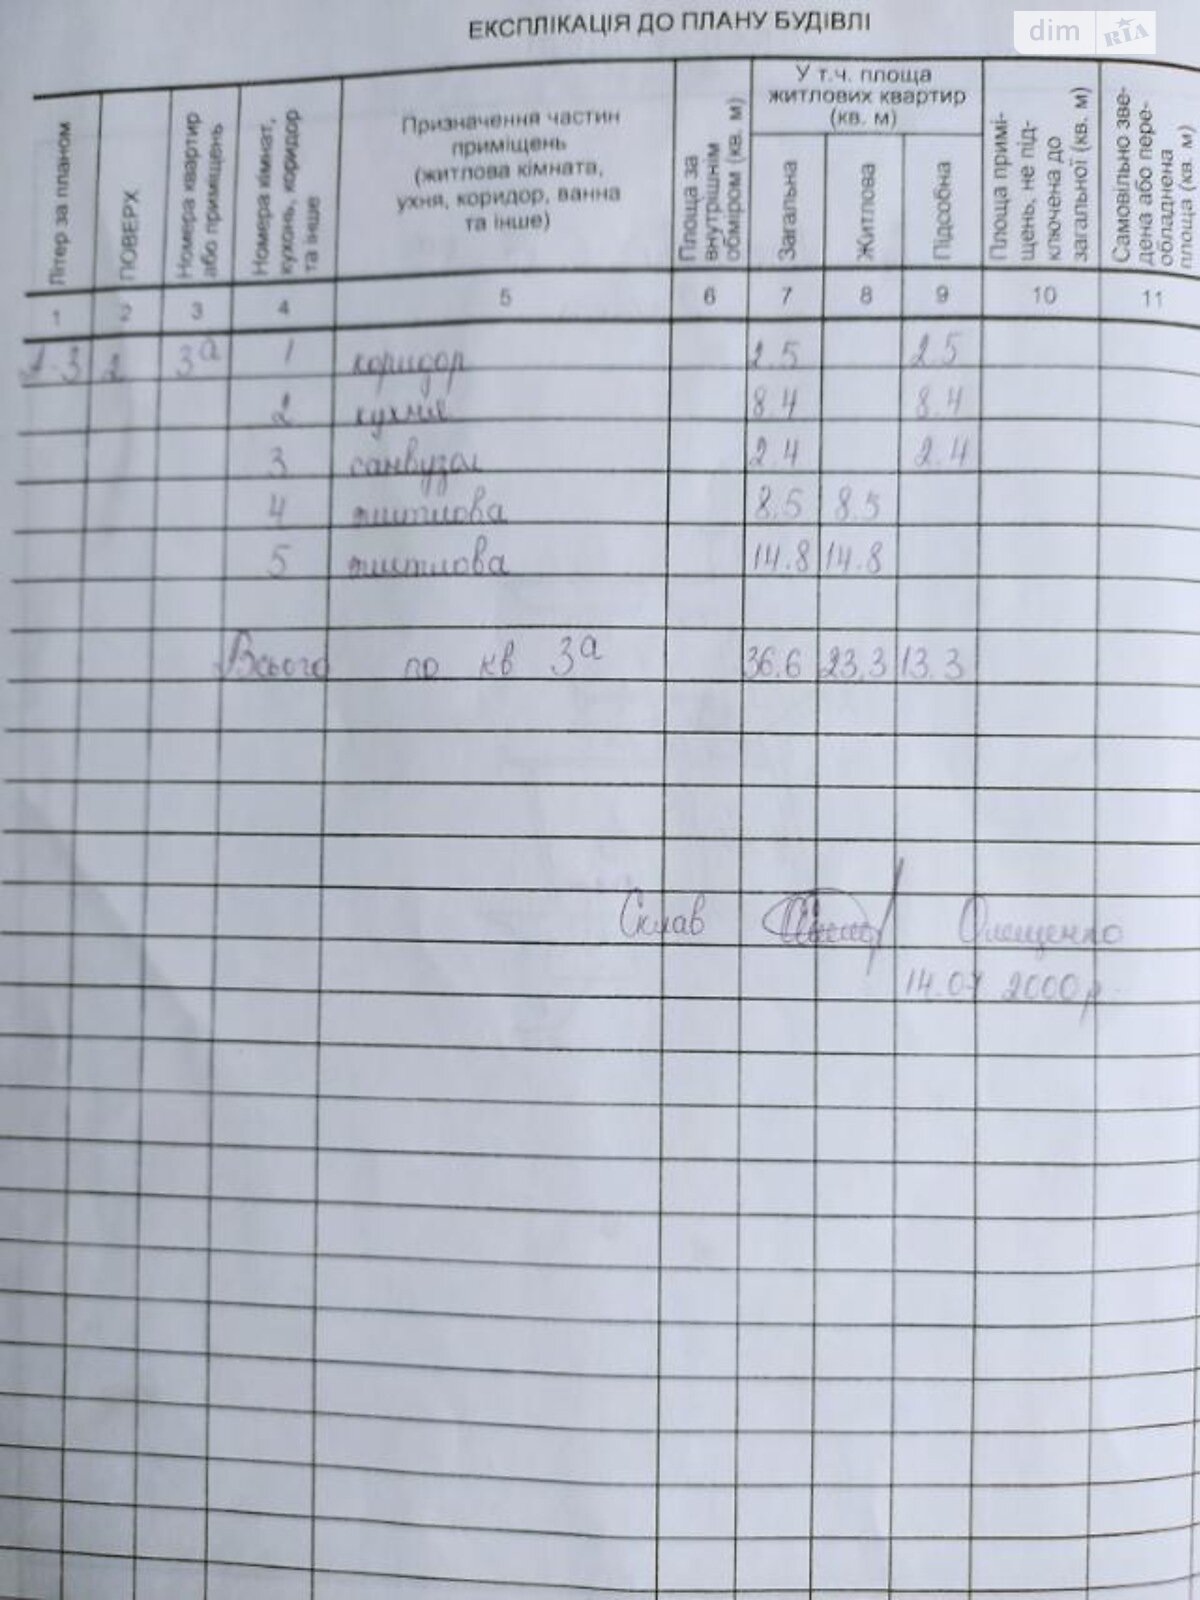 ЕКСПЛІКАЦІЯ ДО ПЛАНУ БУДІВЛІ
dim RIA
Літер за планом
ПОВЕРХ
Номера квартир
або приміщень
Номера кімнат,
кухонь, коридор
та інше
Призначення частин
приміщень
(житлова кімната,
ухня, коридор, ванна
та інше)
Площа за
внутрішнім
обміром (кв. м)
У т.ч. площа
житлових квартир
(кв. м)
Загальна
Житлова
Підсобна
Площа примі-
щень, не під-
ключена до
загальної (кв. м)
Самовільно зве-
дена або пере-
обладнена
площа (кв. м)
1 2 3 4 5 6 7 8 9 10 11
2 3а 1 коридор 2.5 2.5
2 кухня 8.4 8.4
3 санвузол 2.4 2.4
4 житлова 8.5 8.5
5 житлова 14.8 14.8
Всього по кв 3а 36.6 23,3 13.3
Склав Олещенко
14.07 2000р